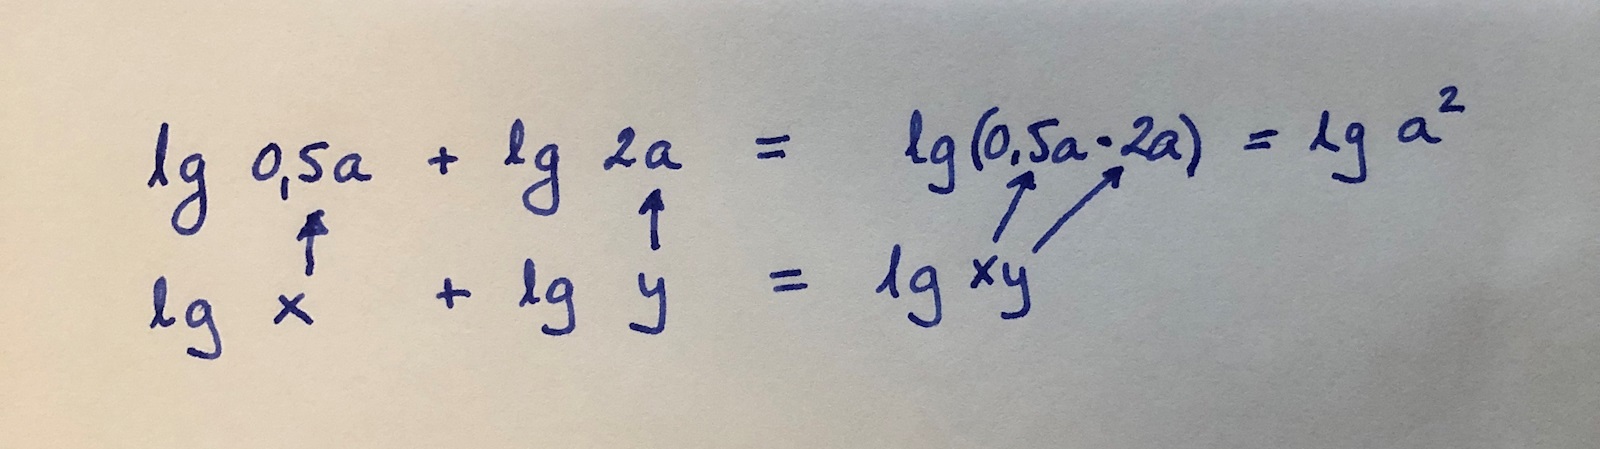 lg 0,5a + lg 2a = lg(0,5a·2a) = lg a²
lg x + lg y = lg xy